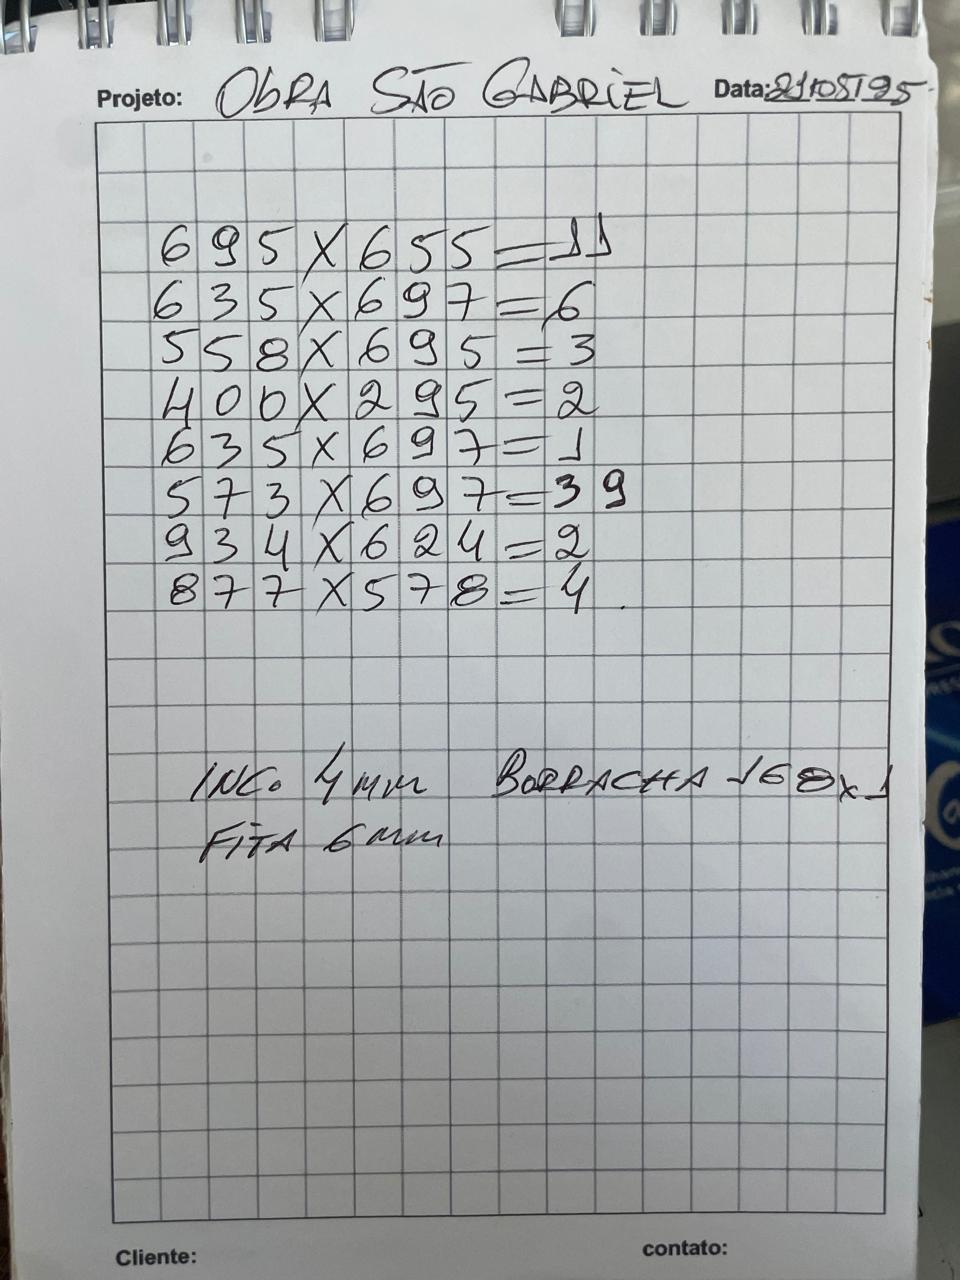 Projeto: OBRA SÃO GABRIEL Data: 21/08/25
695X655=11
635X697=6
558X695=3
400X295=2
635X697=1
573X697=39
934X624=2
877X578=4.
INC. 4MM BORRACHA 168x1
FITA 6MM
Cliente: contato: